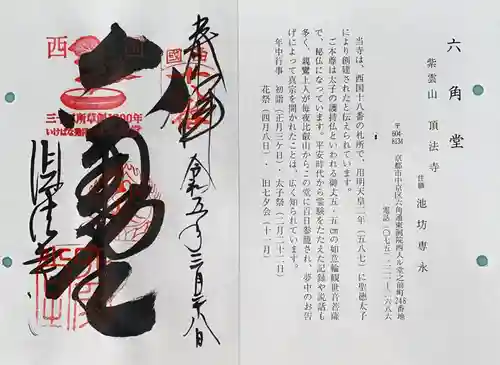 六角堂
紫雲山 頂法寺
住職 池坊専永
〒604-8134 京都市中京区六角通東洞院西入ル堂之前町248番地
電話(〇七五)二二一-二六八六
当寺は、西国十八番の札所で、用明天皇二年(五八七)に聖徳太子
により創建されたと伝えられています。
ご本尊は太子の護持仏といわれる御丈五・五㎝の如意輪観世音菩薩
で、秘仏になっています。平安時代から霊験をたたえた記録や説話も
多く、親鸞上人が毎夜比叡山からこの堂に百日参籠され、夢中のお告
げによって真宗を開かれたことは、広く知られています。
年中行事 初詣(正月三ケ日)・太子祭(二月二十二日)
花祭(四月八日)・旧七夕会(十一月)
奉拝
令和五年三月二十八日
六角堂
頂法寺
西国
いけばな発祥